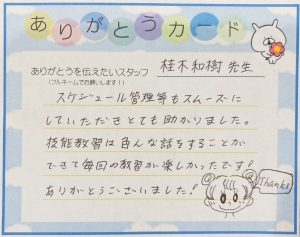 ありがとうカード
ありがとうを伝えたいスタッフ
(フルネームでお願いします!)
桂木和樹 先生
スケジュール管理等もスムーズに
していただきとても助かりました。
技能教習は色んな話をすることが
できて毎回の教習が楽しかったです!
ありがとうございました!
Thanks